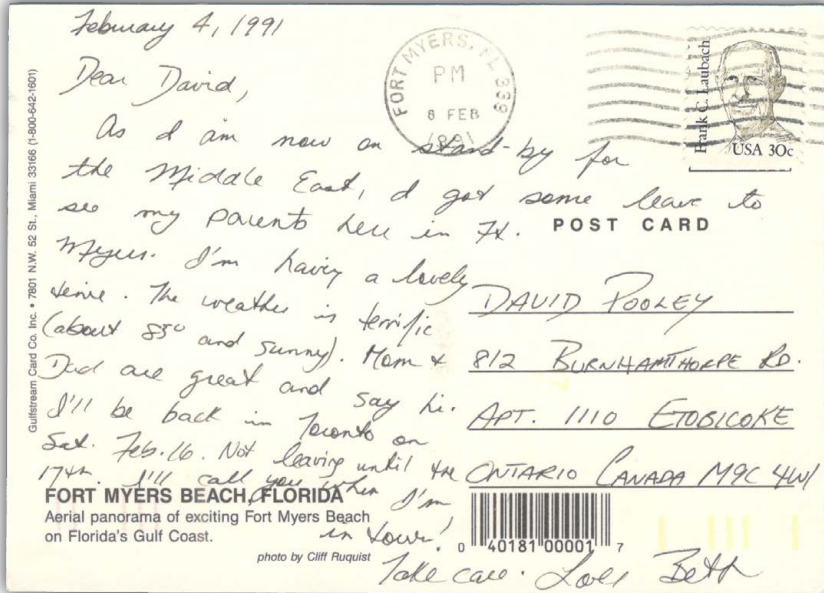 February 4, 1991
Dear David,
As I am now on stand-by for
the Middle East, I got some leave to
see my parents here in Ft.
Myers. I'm having a lovely
time. The weather is terrific
(about 85° and sunny). Mom &
Dad are great and say hi.
I'll be back in Toronto on
Sat. Feb. 16. Not leaving until the
17th. I'll call you when I'm
in town!
Take care. Love Beth
FORT MYERS, FL 339
PM
8 FEB
1991
Frank C. Laubach
USA 30c
POST CARD
DAVID POOLEY
812 BURNHAMTHORPE RD.
APT. 1110 ETOBICOKE
ONTARIO CANADA M9C 4W1
Gulfstream Card Co. Inc. • 7801 N.W. 52 St., Miami 33166 (1-800-642-1601)
FORT MYERS BEACH, FLORIDA
Aerial panorama of exciting Fort Myers Beach
on Florida's Gulf Coast.
photo by Cliff Ruquist
0 40181 00001 7